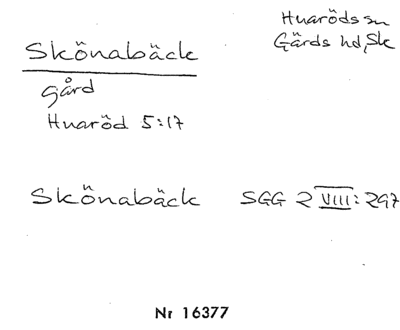 Huaröds sn
Gärds hd, Sk
Skönabäck
gård
Huaröd 5:17
Skönabäck SGG 2 VIII: 297
Nr 16377